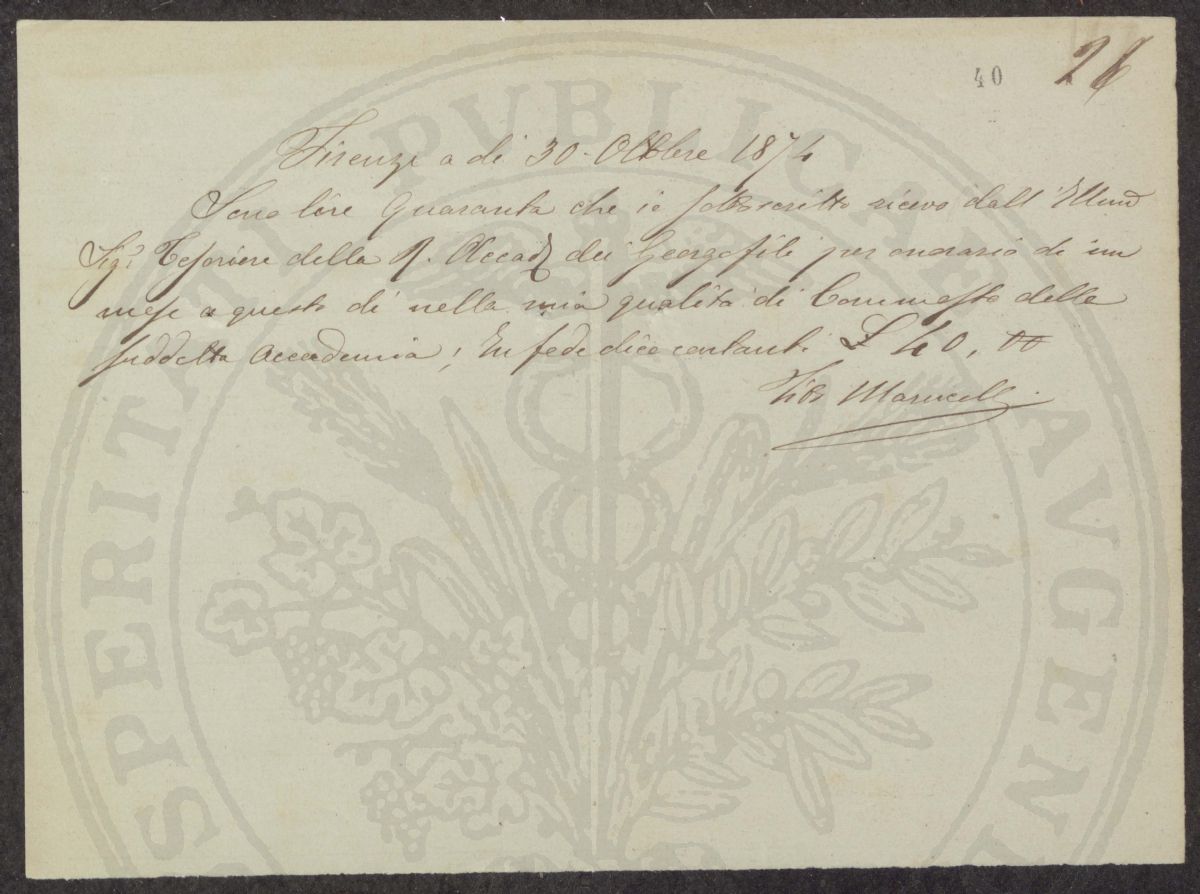 40 26
Firenze a di 30 Ottobre 1874
Sono lire Quaranta che io sottoscritto ricevo dall'Illmo
Sigr Tesoriere della R. Accad. dei Georgofili per onorario di un
mese a questo dì nella mia qualità di Commesso della
suddetta Accademia; In fede dico contanti £ 40, 00
Tito Marucelli
PROSPERITATI PUBLICAE AUGENDAE